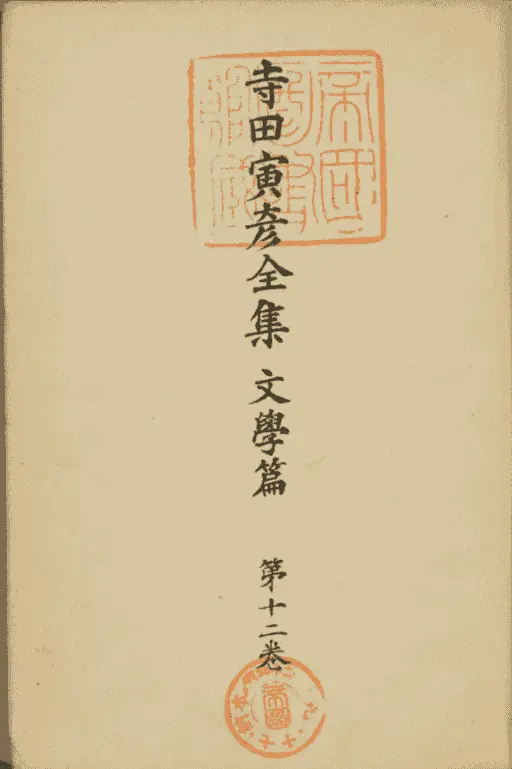 寺田寅彦全集 文學篇
第十二卷